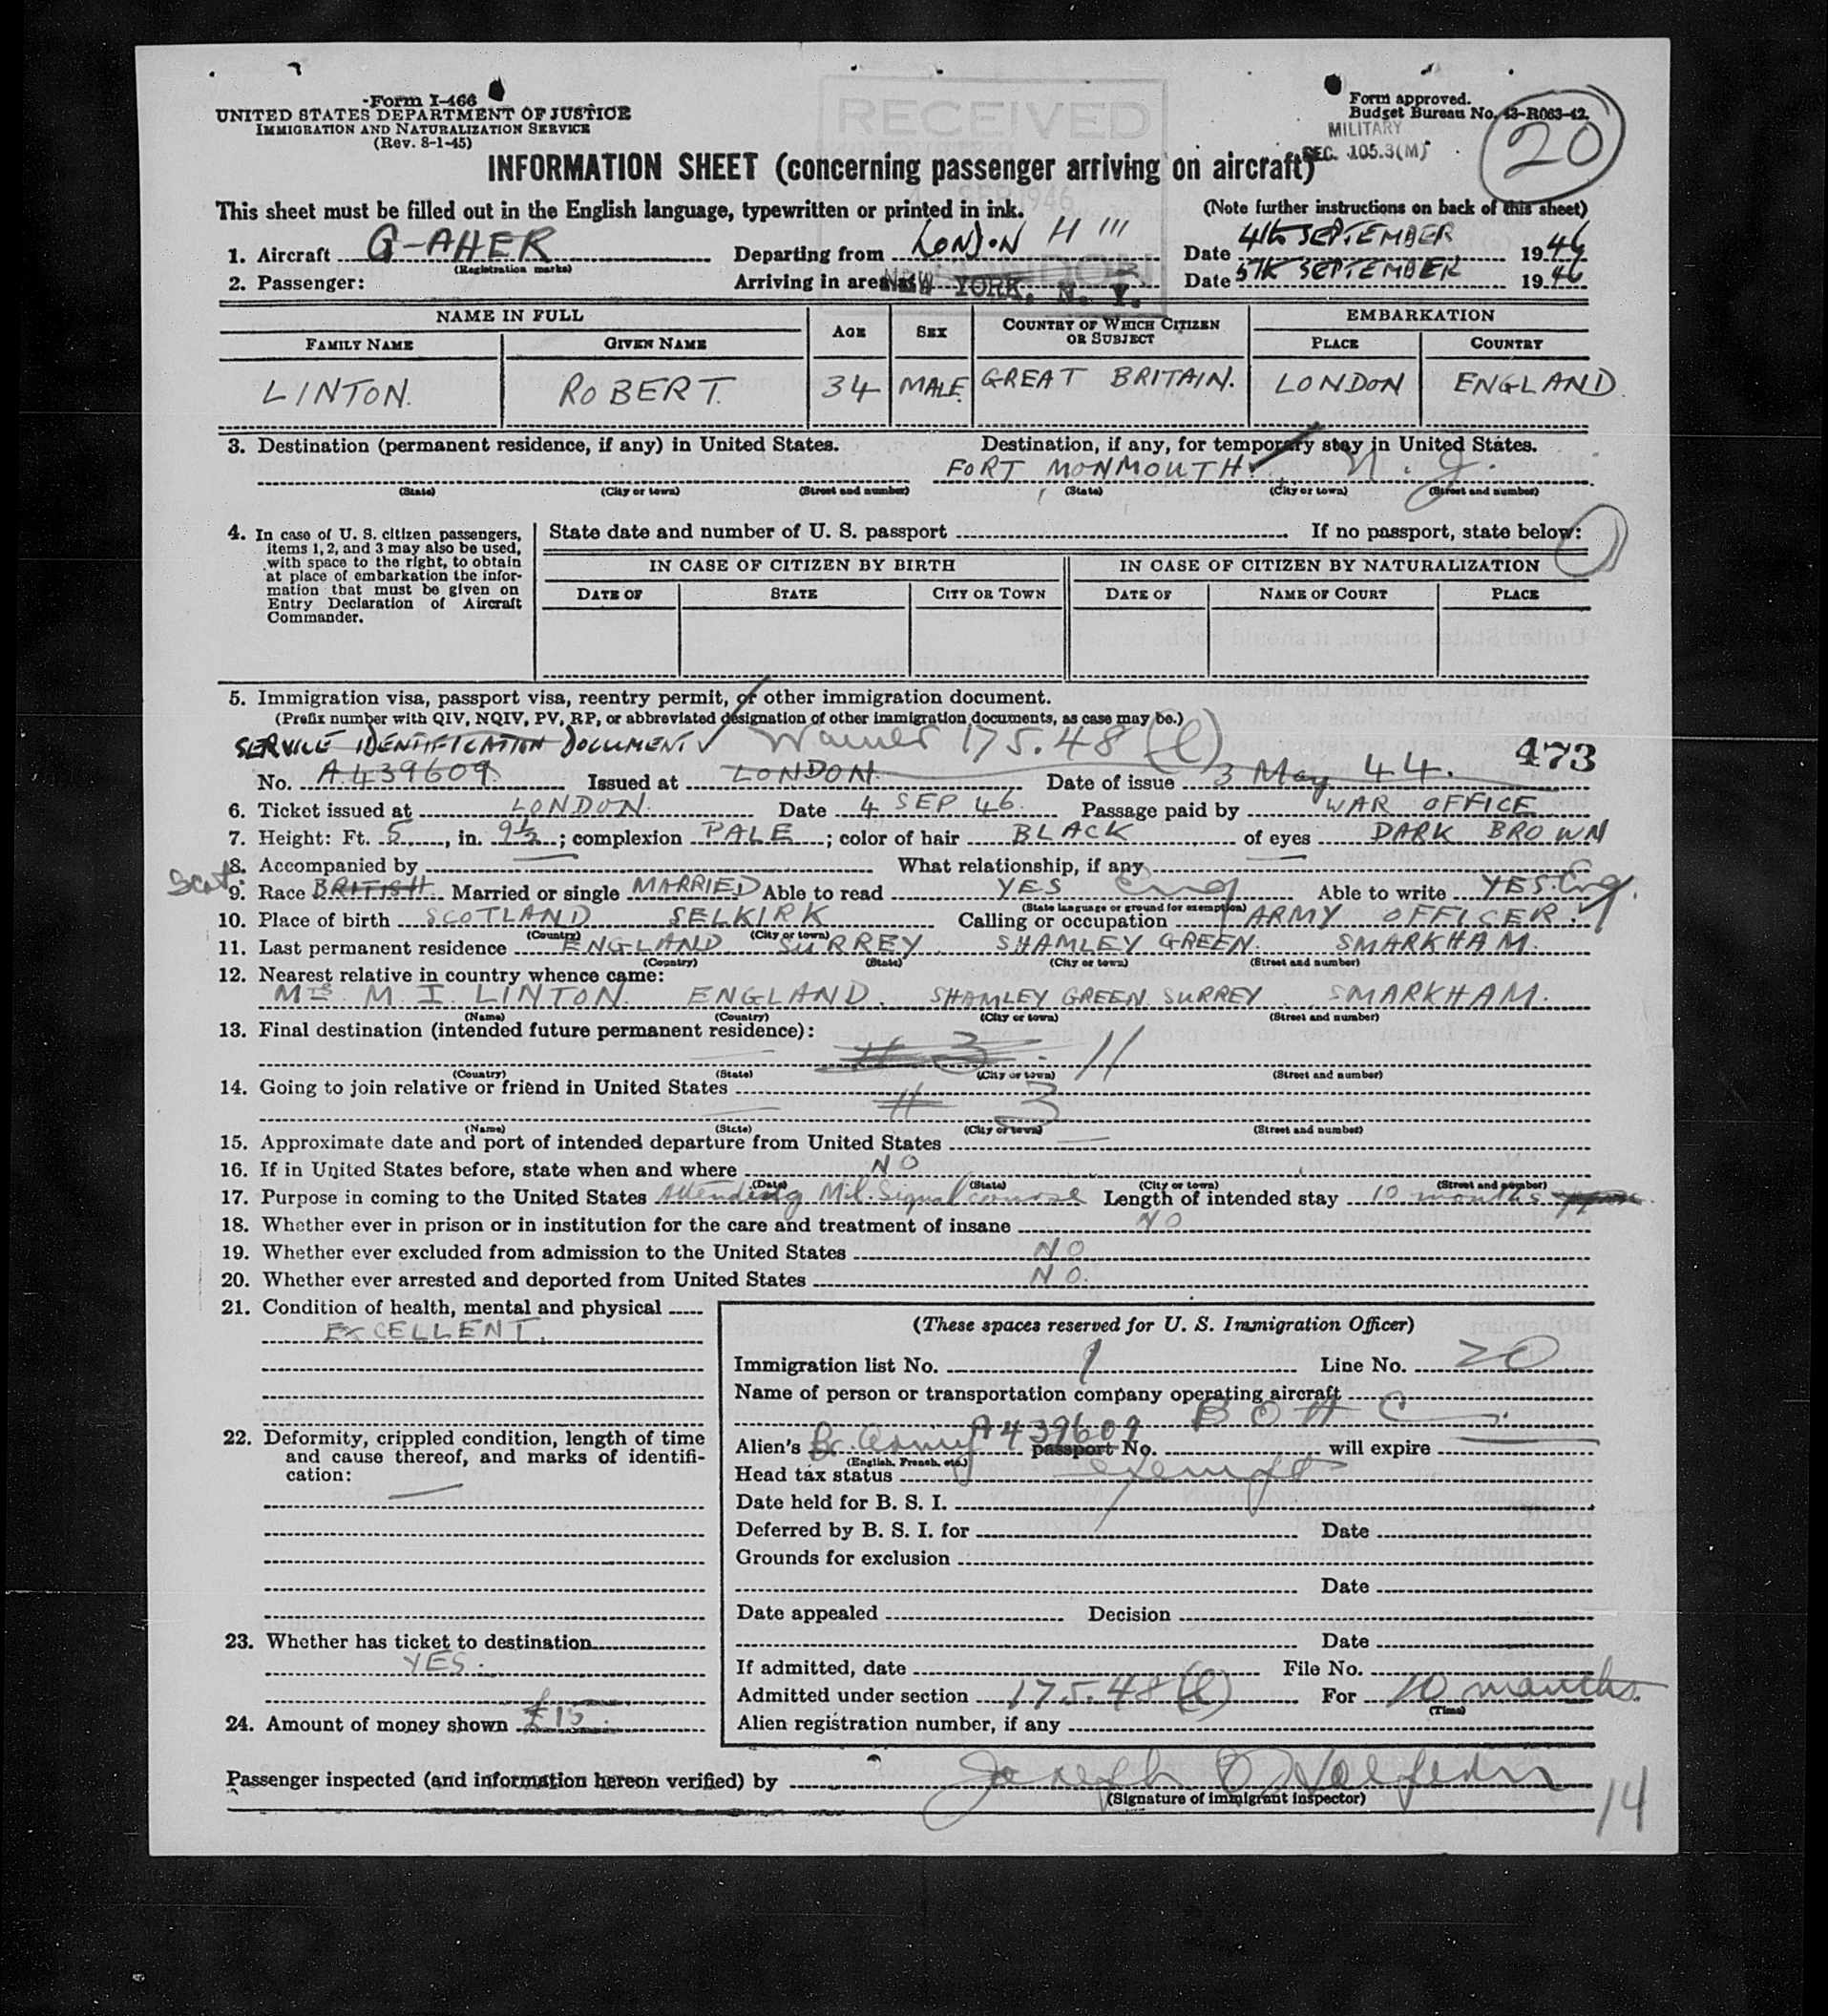 Form I-466
UNITED STATES DEPARTMENT OF JUSTICE
IMMIGRATION AND NATURALIZATION SERVICE
(Rev. 8-1-45)
RECEIVED
Form approved.
Budget Bureau No. 43-R063-42.
MILITARY
SEC. 105.3(M)
20
INFORMATION SHEET (concerning passenger arriving on aircraft)
This sheet must be filled out in the English language, typewritten or printed in ink. (Note further instructions on back of this sheet)
1. Aircraft G-AHER (Registration marks) Departing from LONDON H 111 Date 4th SEPTEMBER 1946
2. Passenger: Arriving in area at NEW YORK, N. Y. Date 5TH SEPTEMBER 1946
NAME IN FULL AGE SEX COUNTRY OF WHICH CITIZEN OR SUBJECT EMBARKATION
FAMILY NAME GIVEN NAME PLACE COUNTRY
LINTON. ROBERT. 34 MALE. GREAT BRITAIN. LONDON ENGLAND.
3. Destination (permanent residence, if any) in United States. Destination, if any, for temporary stay in United States.
FORT MONMOUTH. N. J.
(State) (City or town) (Street and number) (State) (City or town) (Street and number)
4. In case of U. S. citizen passengers, items 1, 2, and 3 may also be used, with space to the right, to obtain at place of embarkation the information that must be given on Entry Declaration of Aircraft Commander.
State date and number of U. S. passport If no passport, state below:
IN CASE OF CITIZEN BY BIRTH IN CASE OF CITIZEN BY NATURALIZATION
DATE OF STATE CITY OR TOWN DATE OF NAME OF COURT PLACE
5. Immigration visa, passport visa, reentry permit, or other immigration document.
(Prefix number with QIV, NQIV, PV, RP, or abbreviated designation of other immigration documents, as case may be.)
SERVICE IDENTIFICATION DOCUMENT Waiver 175.48 (l) 473
No. A.439609. Issued at LONDON. Date of issue 3 May 44.
6. Ticket issued at LONDON. Date 4 SEP 46. Passage paid by WAR OFFICE
7. Height: Ft. 5, in. 9½; complexion PALE; color of hair BLACK of eyes DARK BROWN
8. Accompanied by What relationship, if any
Scot. 9. Race BRITISH Married or single MARRIED Able to read YES Eng Able to write YES. Eng.
(State language or ground for exemption)
10. Place of birth SCOTLAND SELKIRK Calling or occupation ARMY OFFICER.
(Country) (City or town)
11. Last permanent residence ENGLAND SURREY SHAMLEY GREEN. SMARKHAM.
(Country) (State) (City or town) (Street and number)
12. Nearest relative in country whence came:
Mrs M. I. LINTON. ENGLAND. SHAMLEY GREEN SURREY SMARKHAM.
(Name) (Country) (City or town) (Street and number)
13. Final destination (intended future permanent residence):
# 3 11
(Country) (State) (City or town) (Street and number)
14. Going to join relative or friend in United States
# 3
(Name) (State) (City or town) (Street and number)
15. Approximate date and port of intended departure from United States
16. If in United States before, state when and where NO
(Date) (State) (City or town) (Street and number)
17. Purpose in coming to the United States Attending Mil. Signal course Length of intended stay 10 months
18. Whether ever in prison or in institution for the care and treatment of insane NO
19. Whether ever excluded from admission to the United States NO
20. Whether ever arrested and deported from United States NO.
21. Condition of health, mental and physical
EXCELLENT.
22. Deformity, crippled condition, length of time and cause thereof, and marks of identification:
23. Whether has ticket to destination
YES.
24. Amount of money shown £15.
(These spaces reserved for U. S. Immigration Officer)
Immigration list No. 1 Line No. 20
Name of person or transportation company operating aircraft
B O A C
Alien's Br. Army A439609 passport No. will expire
(English, French, etc.)
Head tax status exempt
Date held for B. S. I.
Deferred by B. S. I. for Date
Grounds for exclusion
Date
Date appealed Decision
Date
If admitted, date File No.
Admitted under section 175.48 (l) For 10 months.
(Time)
Alien registration number, if any
Passenger inspected (and information hereon verified) by Joseph
(Signature of immigrant inspector)
14